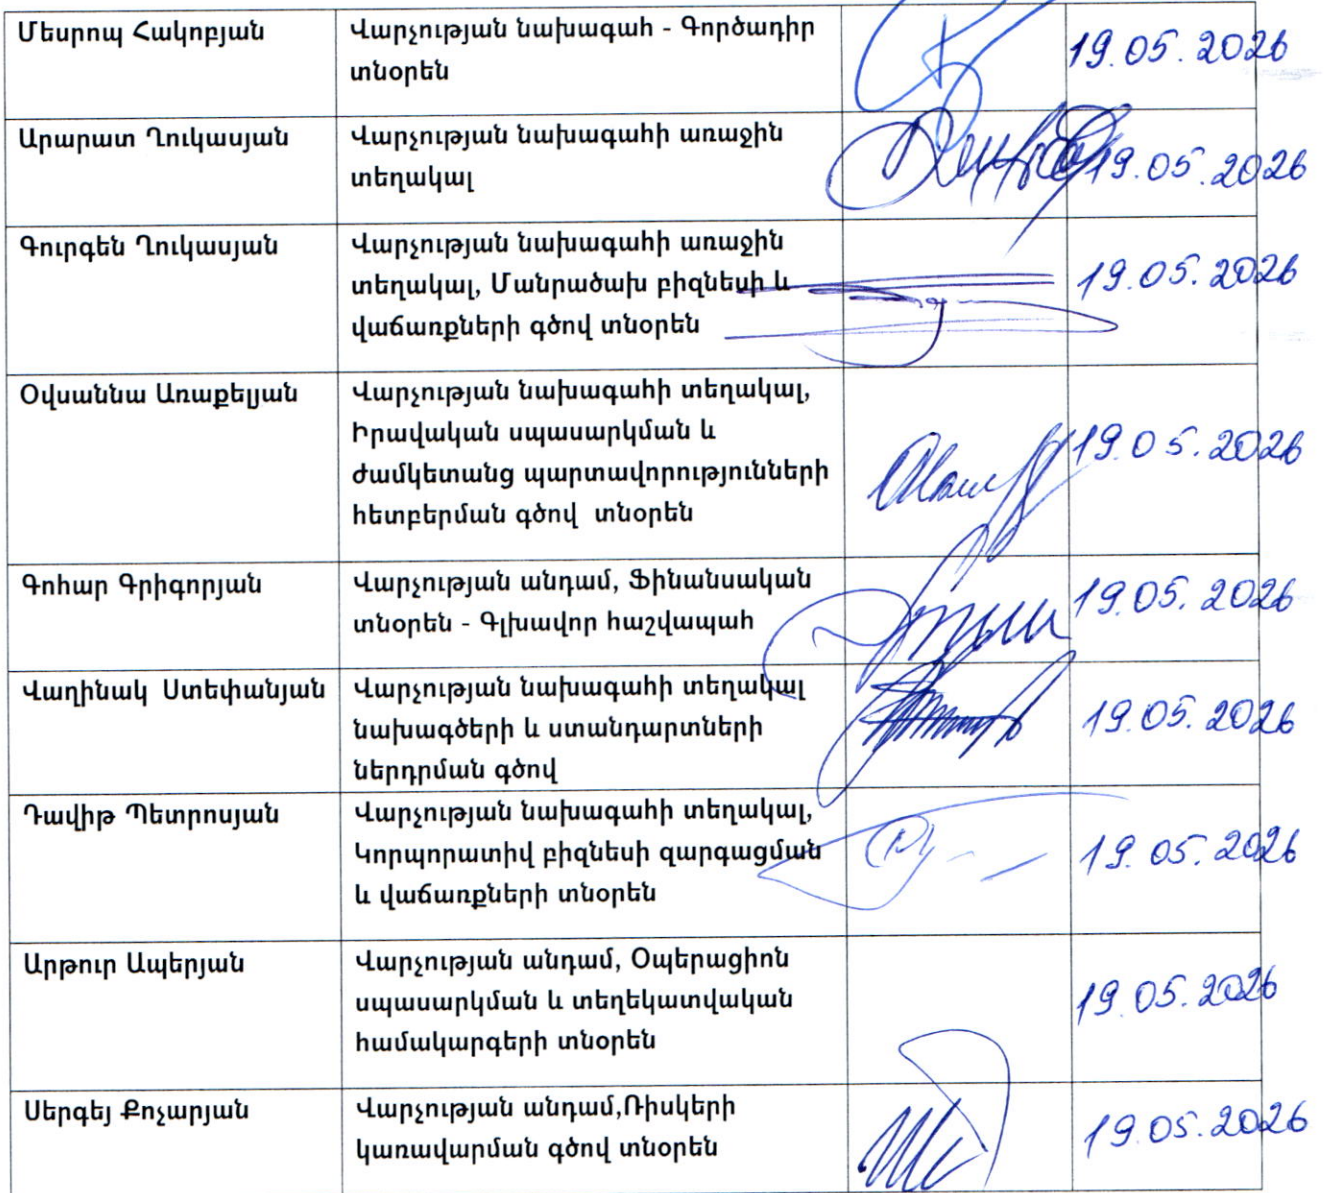 Մեսրոպ Հակոբյան
Վարչության նախագահ - Գործադիր
տնօրեն
19.05.2026
Արարատ Ղուկասյան
Վարչության նախագահի առաջին
տեղակալ
19.05.2026
Գուրգեն Ղուկասյան
Վարչության նախագահի առաջին
տեղակալ, Մանրածախ բիզնեսի և
վաճառքների գծով տնօրեն
19.05.2026
Օվսաննա Առաքելյան
Վարչության նախագահի տեղակալ,
Իրավական սպասարկման և
ժամկետանց պարտավորությունների
հետբերման գծով տնօրեն
19.05.2026
Գոհար Գրիգորյան
Վարչության անդամ, Ֆինանսական
տնօրեն - Գլխավոր հաշվապահ
19.05.2026
Վաղինակ Ստեփանյան
Վարչության նախագահի տեղակալ
նախագծերի և ստանդարտների
ներդրման գծով
19.05.2026
Դավիթ Պետրոսյան
Վարչության նախագահի տեղակալ,
Կորպորատիվ բիզնեսի զարգացման
և վաճառքների տնօրեն
19.05.2026
Արթուր Ապերյան
Վարչության անդամ, Օպերացիոն
սպասարկման և տեղեկատվական
համակարգերի տնօրեն
19.05.2026
Սերգեյ Քոչարյան
Վարչության անդամ,Ռիսկերի
կառավարման գծով տնօրեն
19.05.2026